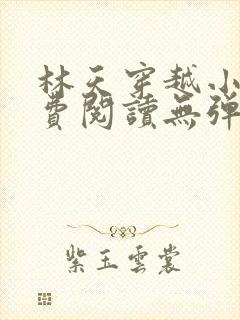 林天穿越小
費閱讀無彈
紫玉雲裳